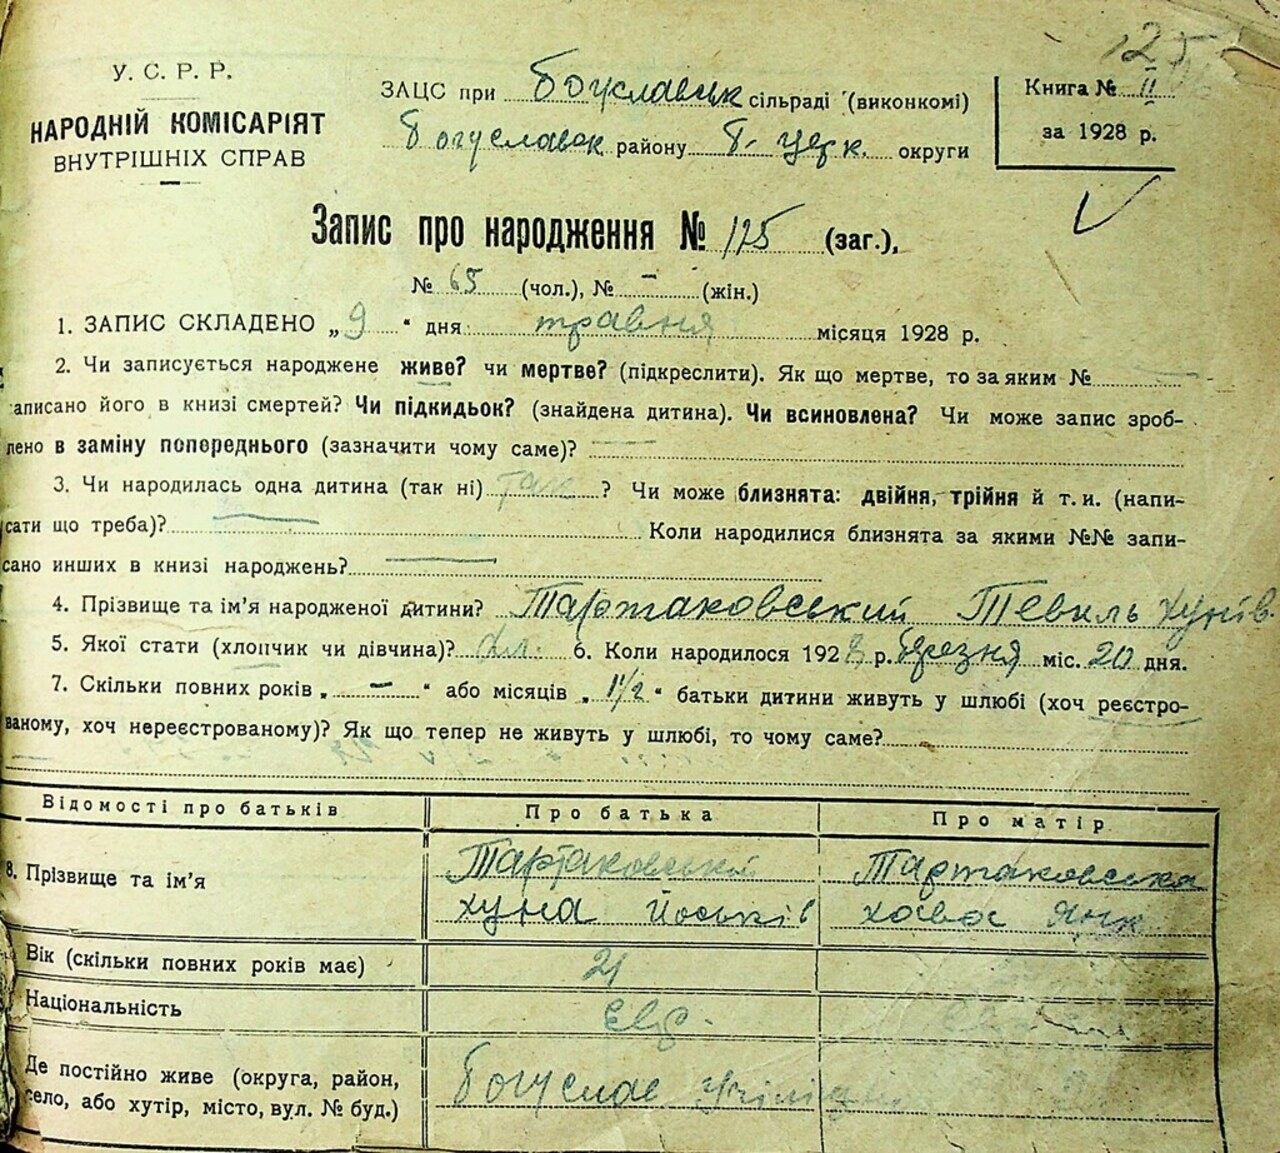 125
У. С. Р. Р.
НАРОДНІЙ КОМІСАРІЯТ
ВНУТРІШНІХ СПРАВ
ЗАЦС при Богуславськ сільраді (виконкомі)
Богуславськ району Б-Церк. округи
Книга № II
за 1928 р.
Запис про народження № 125 (заг.),
№ 65 (чол.), № – (жін.)
1. ЗАПИС СКЛАДЕНО „9" дня травня місяця 1928 р.
2. Чи записується народжене живе? чи мертве? (підкреслити). Як що мертве, то за яким №
записано його в книзі смертей? Чи підкидьок? (знайдена дитина). Чи всиновлена? Чи може запис зроб-
лено в заміну попереднього (зазначити чому саме)?
3. Чи народилась одна дитина (так ні) так ? Чи може близнята: двійня, трійня й т. и. (напи-
сати що треба)? Коли народилися близнята за якими №№ запи-
сано инших в книзі народжень?
4. Прізвище та ім'я народженої дитини? Тартаковський Тевиль Хунів.
5. Якої стати (хлопчик чи дівчина)? 6. Коли народилося 1928 р. березня міс. 20 дня.
7. Скільки повних років „ – " або місяців „ 1 1/2 " батьки дитини живуть у шлюбі (хоч реєстро-
ваному, хоч нереєстрованому)? Як що тепер не живуть у шлюбі, то чому саме?
Відомості про батьків Про батька Про матір
8. Прізвище та ім'я
Тартаковський
Хуна Йоськів
Тартаковська
Хава Янк
Вік (скільки повних років має) 21
Національність Євр.
Де постійно живе (округа, район,
село, або хутір, місто, вул. № буд.)
Богуслав